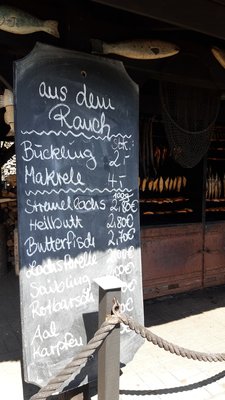 aus dem
Rauch
Stk.
Bückling 2,-
Makrele 4,-
100gr
Stremellachs 2,80€
Heilbutt 2,80€
Butterfisch 2,70€
Lachsforelle
Saibling
Rotbarsch
Aal
Karpfen